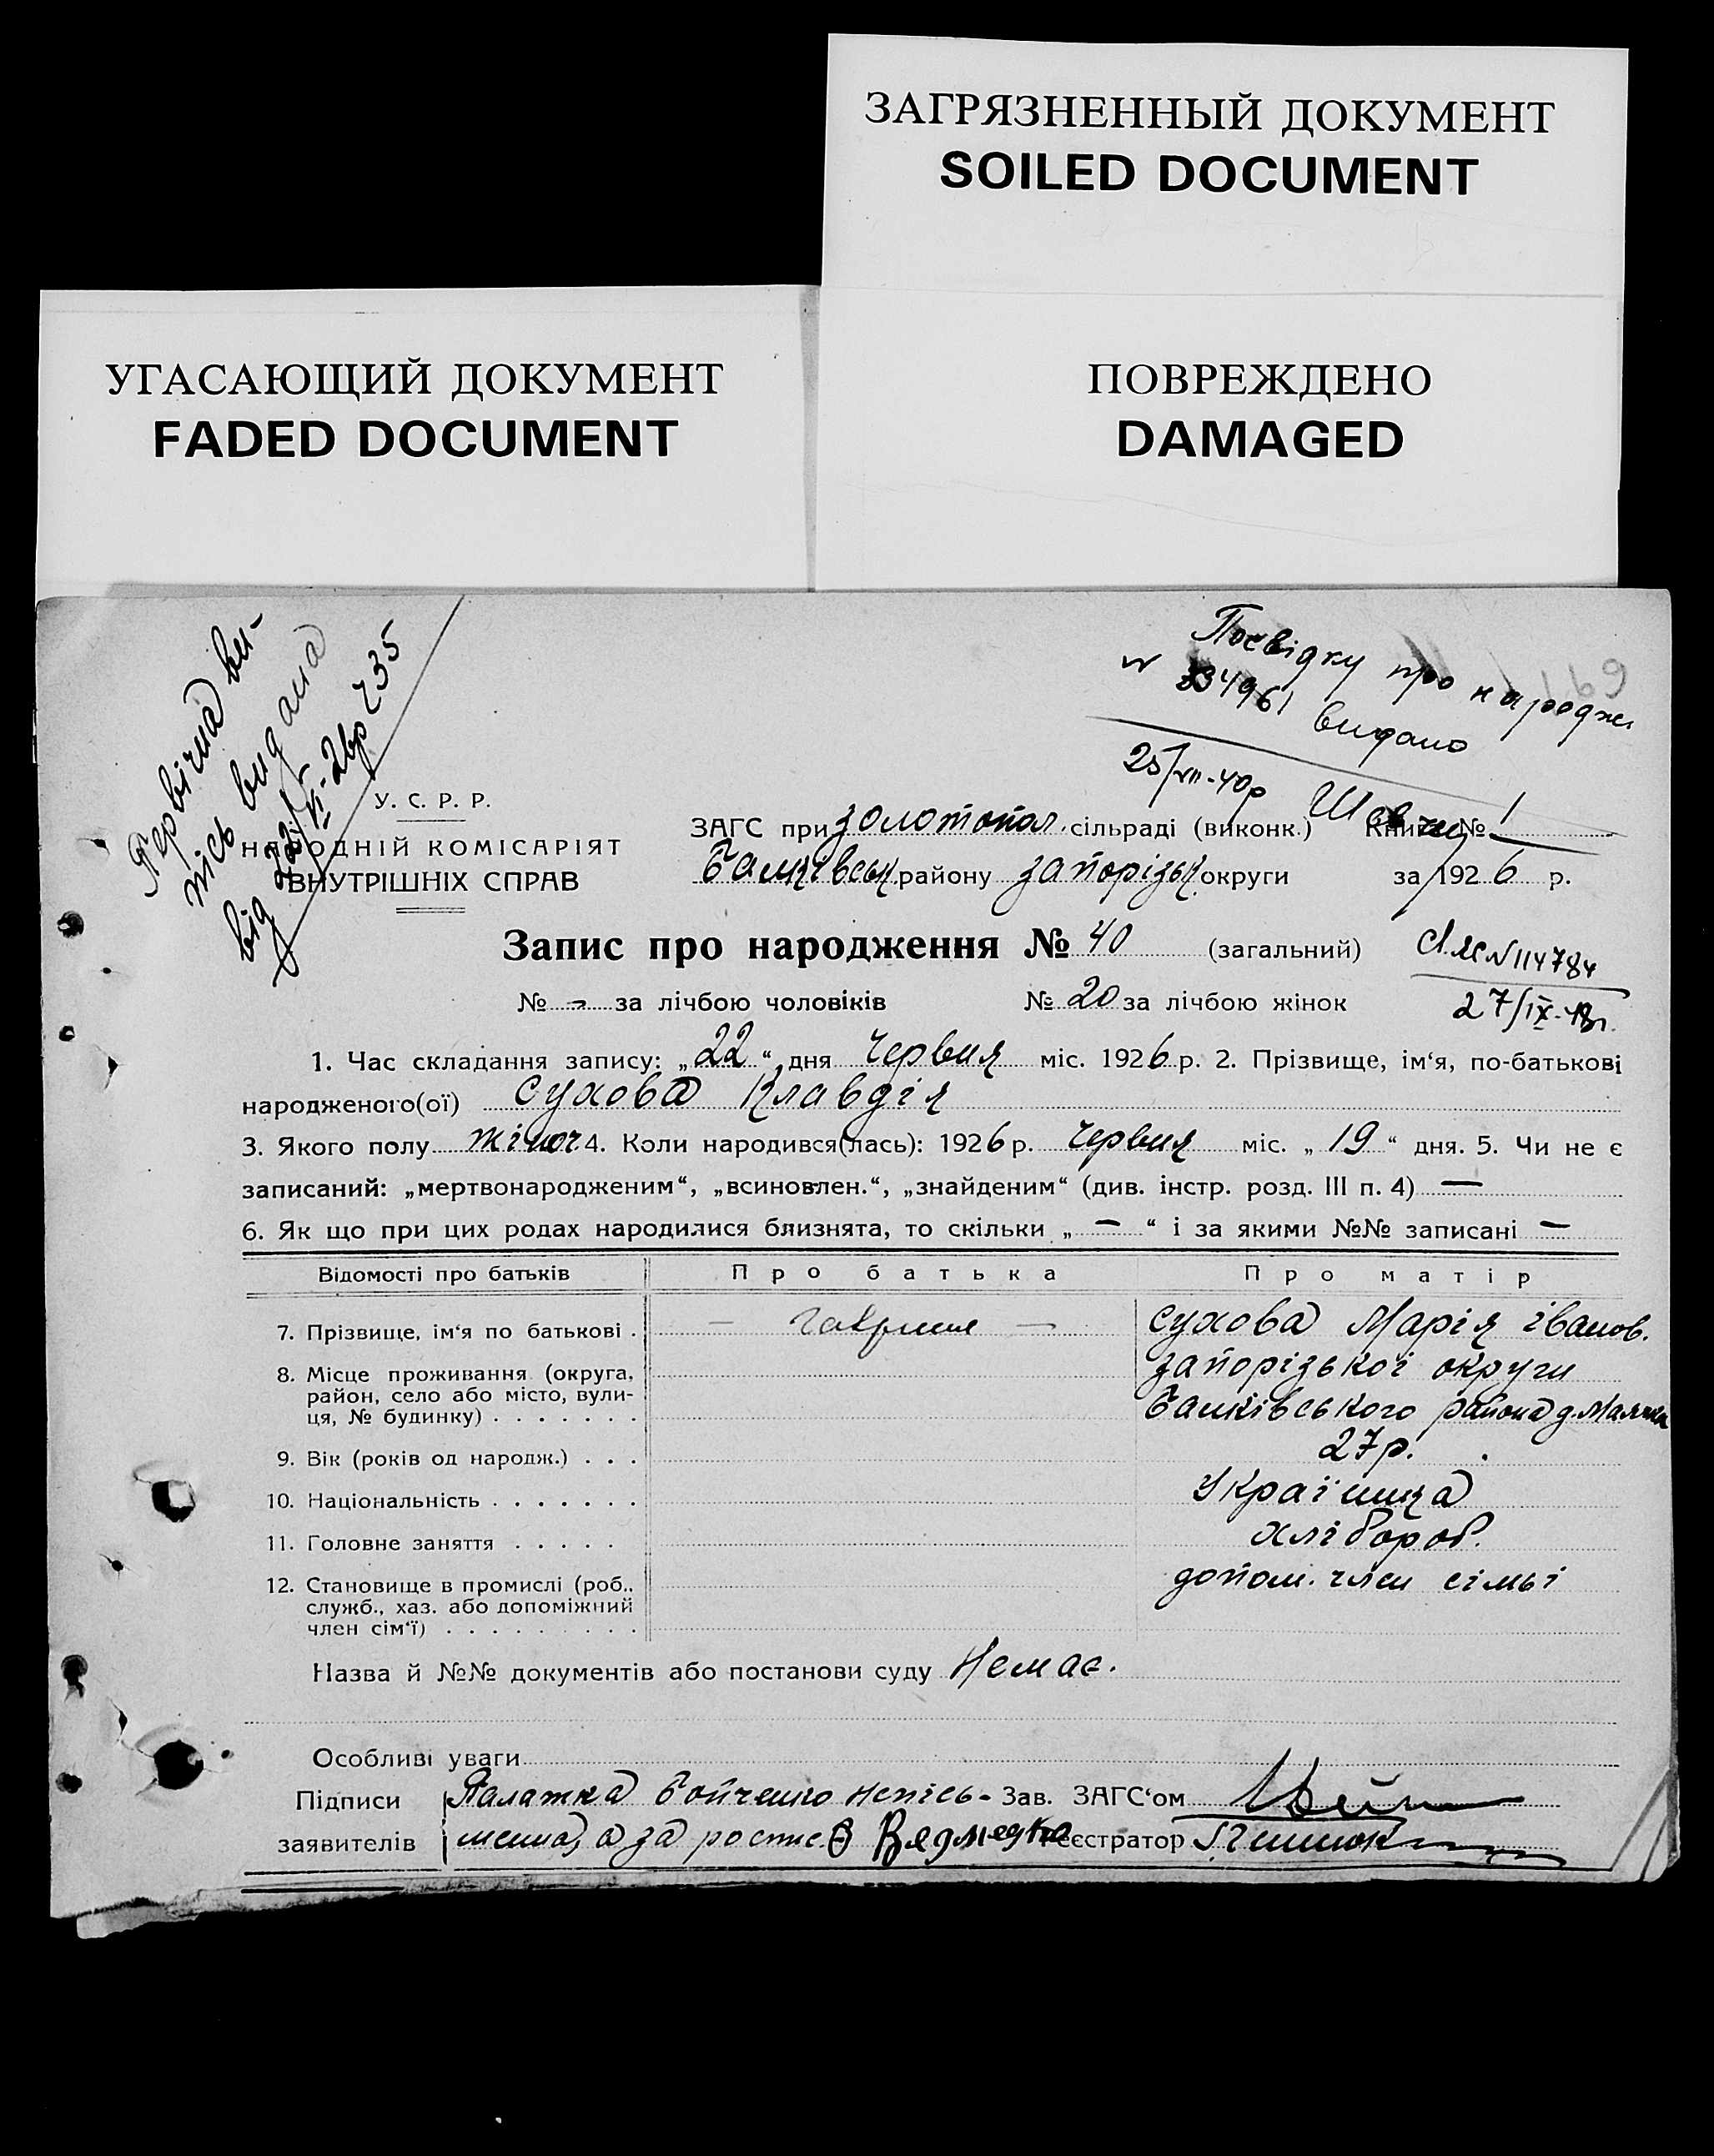 ЗАГРЯЗНЕННЫЙ ДОКУМЕНТ
SOILED DOCUMENT
УГАСАЮЩИЙ ДОКУМЕНТ
FADED DOCUMENT
ПОВРЕЖДЕНО
DAMAGED
Первічна ви-
пись видана
від 22/VI-26р 235
Посвідку про народже
видано
25/VII-40р
169
У. С. Р. Р.
НАРОДНІЙ КОМІСАРІЯТ
ВНУТРІШНІХ СПРАВ
ЗАГС при золотопол. сільраді (виконк.) Книга № 1
району запорізьк округи за 1926 р.
Запис про народження № 40 (загальний)
№ - за лічбою чоловіків № 20 за лічбою жінок
№ 114784
27/IX-
1. Час складання запису: „22“ дня червня міс. 1926 р. 2. Прізвище, ім‘я, по-батькові
народженого(ої) сухова Клавдія
3. Якого полу жіноч 4. Коли народився(лась): 1926 р. червня міс. „19“ дня. 5. Чи не є
записаний: „мертвонародженим“, „всиновлен.“, „знайденим“ (див. інстр. розд. III п. 4) —
6. Як що при цих родах народилися близнята, то скільки „ — “ і за якими №№ записані —
Відомості про батьків Про батька Про матір
7. Прізвище, ім‘я по батькові . сухова Марія іванов.
8. Місце проживання (округа, район, село або місто, вули-ця, № будинку) . . . . . . . запорізької округи
района д. Маячка
9. Вік (років од народж.) . . . 27р.
10. Національність . . . . . . . Українка
11. Головне заняття . . . . . хлібороб.
12. Становище в промислі (роб., служб., хаз. або допоміжний член сім‘ї) . . . . . . . . . допом. член сімьі
Назва й №№ документів або постанови суду Немає.
Особливі уваги
Підписи Палажка Бойченко непісь- Зав. ЗАГС‘ом
заявителів менна, а за розпис. Ведмедка Реєстратор